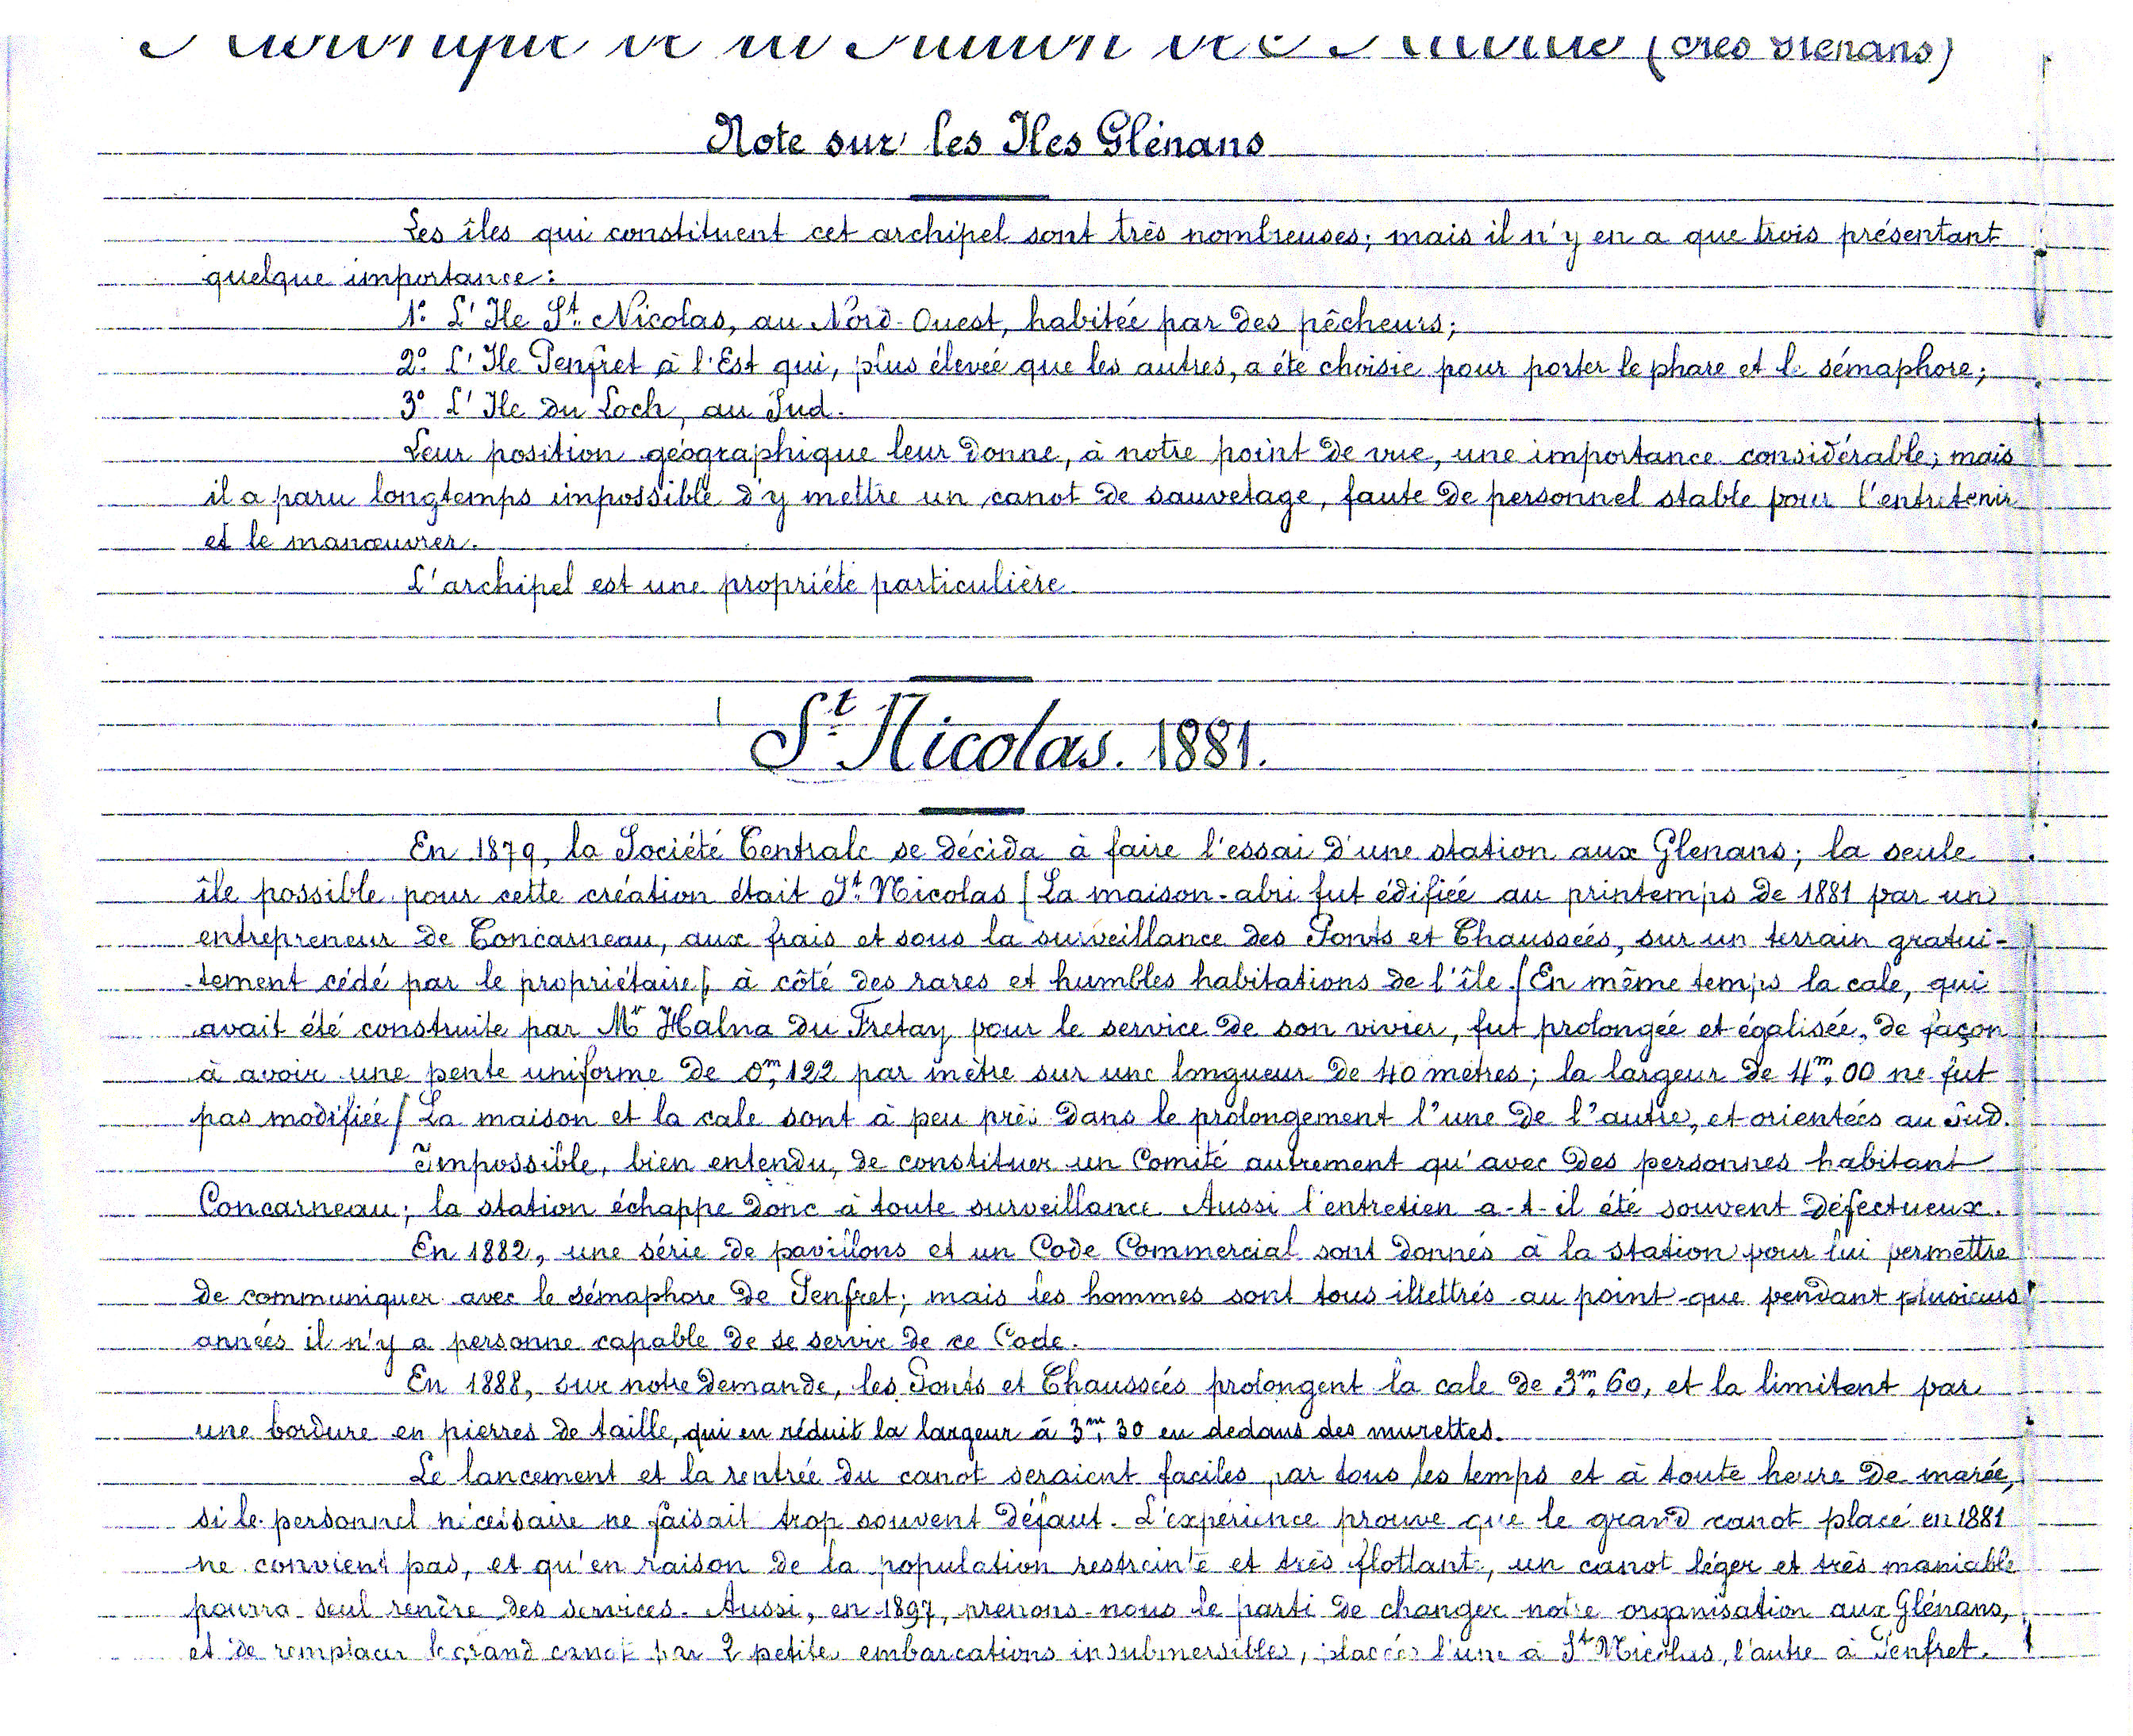 Historique de la Station de St Nicolas (Iles Glénans)
Note sur les Iles Glénans
Les îles qui constituent cet archipel sont très nombreuses; mais il n'y en a que trois présentant
quelque importance:
1º L'Ile St. Nicolas, au Nord-Ouest, habitée par des pêcheurs;
2º L'Ile Penfret à l'Est qui, plus élevée que les autres, a été choisie pour porter le phare et le sémaphore;
3º L'Ile du Loch, au Sud.
Leur position géographique leur donne, à notre point de vue, une importance considérable; mais
il a paru longtemps impossible d'y mettre un canot de sauvetage, faute de personnel stable pour l'entretenir
et le manœuvrer.
L'archipel est une propriété particulière.
St. Nicolas. 1881.
En 1879, la Société Centrale se décida à faire l'essai d'une station aux Glenans; la seule
île possible pour cette création était St. Nicolas [La maison-abri fut édifiée au printemps de 1881 par un
entrepreneur de Concarneau, aux frais et sous la surveillance des Ponts et Chaussées, sur un terrain gratui-
tement cédé par le propriétaire], à côté des rares et humbles habitations de l'île. [En même temps la cale, qui
avait été construite par Mr Halna du Fretay pour le service de son vivier, fut prolongée et égalisée, de façon
à avoir une pente uniforme de 0m,122 par mètre sur une longueur de 40 mètres; la largeur de 4m,00 ne fut
pas modifiée] La maison et la cale sont à peu près dans le prolongement l'une de l'autre, et orientées au Sud.
Impossible, bien entendu, de constituer un Comité autrement qu'avec des personnes habitant
Concarneau; la station échappe donc à toute surveillance. Aussi l'entretien a-t-il été souvent défectueux.
En 1882, une série de pavillons et un Code Commercial sont donnés à la station pour lui permettre
de communiquer avec le sémaphore de Penfret; mais les hommes sont tous illettrés au point que pendant plusieurs
années il n'y a personne capable de se servir de ce Code.
En 1888, sur notre demande, les Ponts et Chaussées prolongent la cale de 3m,60, et la limitent par
une bordure en pierres de taille, qui en réduit la largeur à 3m,30 en dedans des murettes.
Le lancement et la rentrée du canot seraient faciles par tous les temps et à toute heure de marée,
si le personnel nécessaire ne faisait trop souvent défaut. L'expérience prouve que le grand canot placé en 1881
ne convient pas, et qu'en raison de la population restreinte et très flottante, un canot léger et très maniable
pourra seul rendre des services. Aussi, en 1897, prenons-nous le parti de changer notre organisation aux Glénans,
et de remplacer le grand canot par 2 petites embarcations insubmersibles, placées l'une à St. Nicolas, l'autre à Penfret.